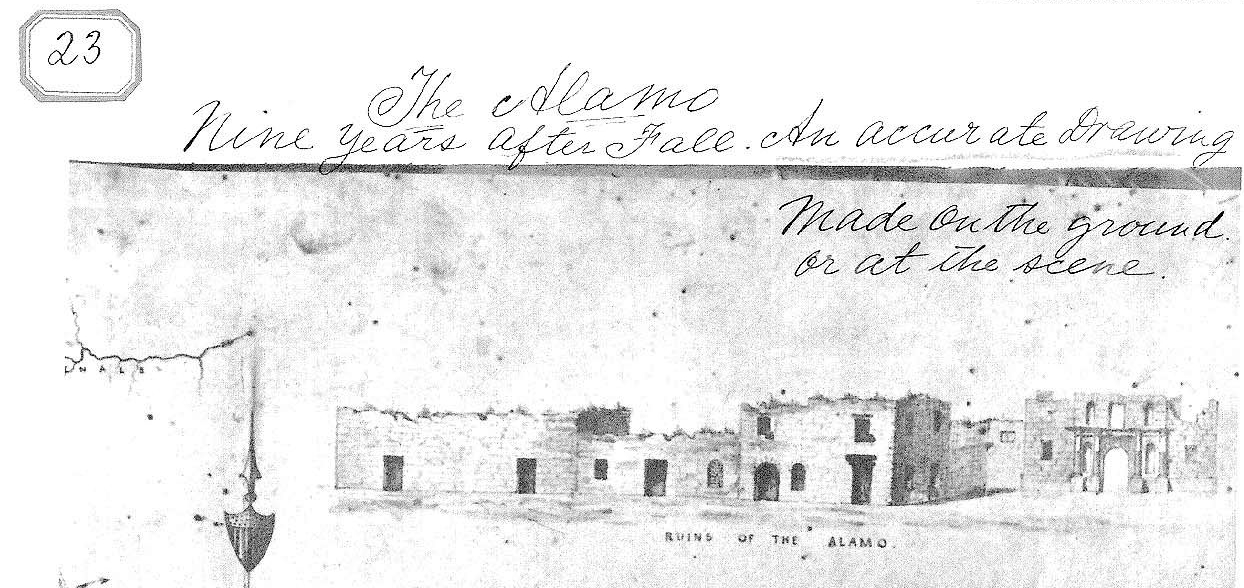 23
The Alamo
Nine years after Fall. An accurate Drawing
Made on the ground.
or at the scene.
NALES
RUINS OF THE ALAMO.